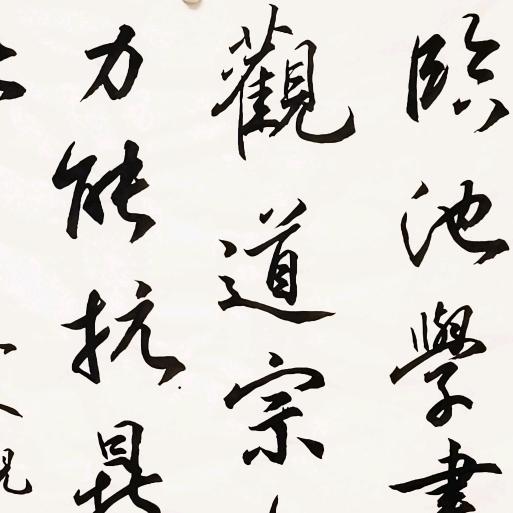 臨池學書
觀道宗
力能抗鼎